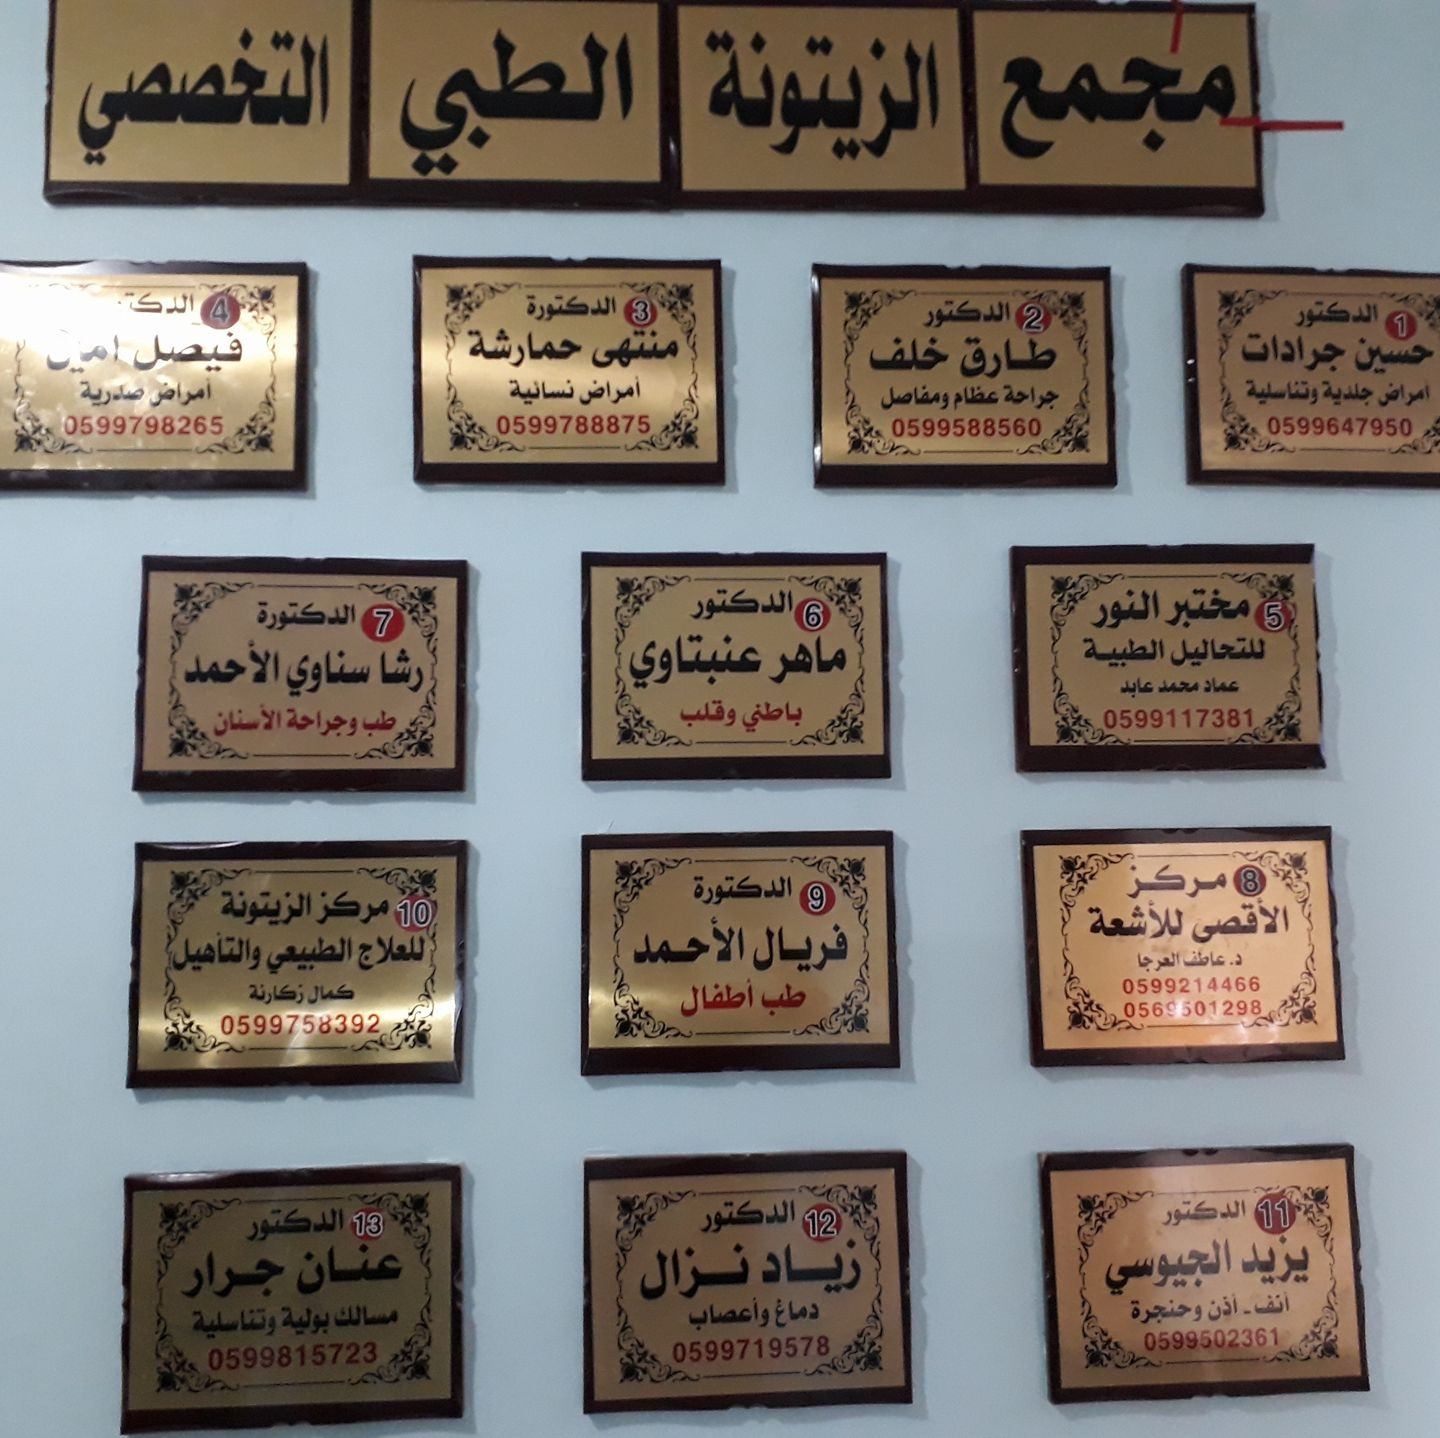 مجمع الزيتونة الطبي التخصصي
1 الدكتور
حسين جرادات
امراض جلدية وتناسلية
0599647950
2 الدكتور
طارق خلف
جراحة عظام ومفاصل
0599588560
3 الدكتورة
منتهى حمارشة
أمراض نسائية
0599788875
4 الدكتور
فيصل امين
أمراض صدرية
0599798265
5 مختبر النور
للتحاليل الطبية
عماد محمد عابد
0599117381
6 الدكتور
ماهر عنبتاوي
باطني وقلب
7 الدكتورة
رشا سناوي الأحمد
طب وجراحة الأسنان
8 مركز
الأقصى للأشعة
د. عاطف العرجا
0599214466
0569501298
9 الدكتورة
فريال الأحمد
طب أطفال
10 مركز الزيتونة
للعلاج الطبيعي والتأهيل
كمال زكارنة
0599758392
11 الدكتور
يزيد الجيوسي
أنف - أذن وحنجرة
0599502361
12 الدكتور
زياد نزال
دماغ وأعصاب
0599719578
13 الدكتور
عنان جرار
مسالك بولية وتناسلية
0599815723